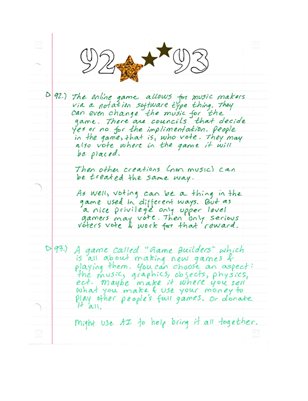 92 93
92.) The online game allows for music makers
via a notation software type thing. They
can even change the music for the
game. There are councils that decide
yes or no for the implimentation. People
in the game, that is, who vote. They may
also vote where in the game it will
be placed.
Then other creations (non music) can
be treated the same way.
As well, voting can be a thing in the
game used in different ways. But as
a nice privilege only upper level
gamers may vote. Then only serious
voters vote & work for that reward.
93.) A game called "Game Builders" which
is all about making new games &
playing them. You can choose an aspect:
the music, graphics, objects, physics,
ect. Maybe make it where you sell
what you make & use your money to
play other people's full games. Or donate
it all.
Might use AI to help bring it all together.